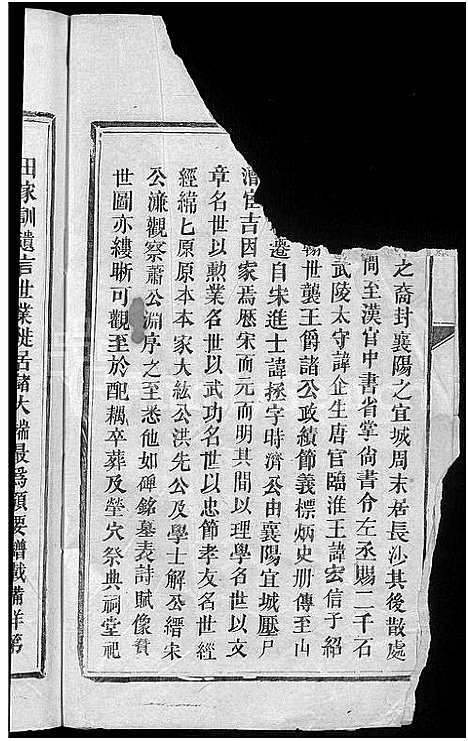 之裔封襄陽之宜城周末居長沙其後散處
間至漢官中書省掌尙書令左丞賜二千石
武陵太守諱企生唐官臨淮王諱宏信子紹
世襲王爵諸公政績節義標炳史册傳至山
遷自宋進士諱拯字時濟公由襄陽宜城壓尸
官吉因家焉厯宋而元而明其間以理學名世以文
章名世以勲業名世以武功名世以忠節孝友名世經
經緯匕原原本本家大紘公洪先公及學士解公縉宋
公濂觀察蕭公淵序之至悉他如碑銘墓表詩賦像賛
世圖亦縷晰可觀至於配耦卒葬及塋穴祭典祠堂祀
田家訓遺言世業徙居諸大端最爲領要譜戬備详第